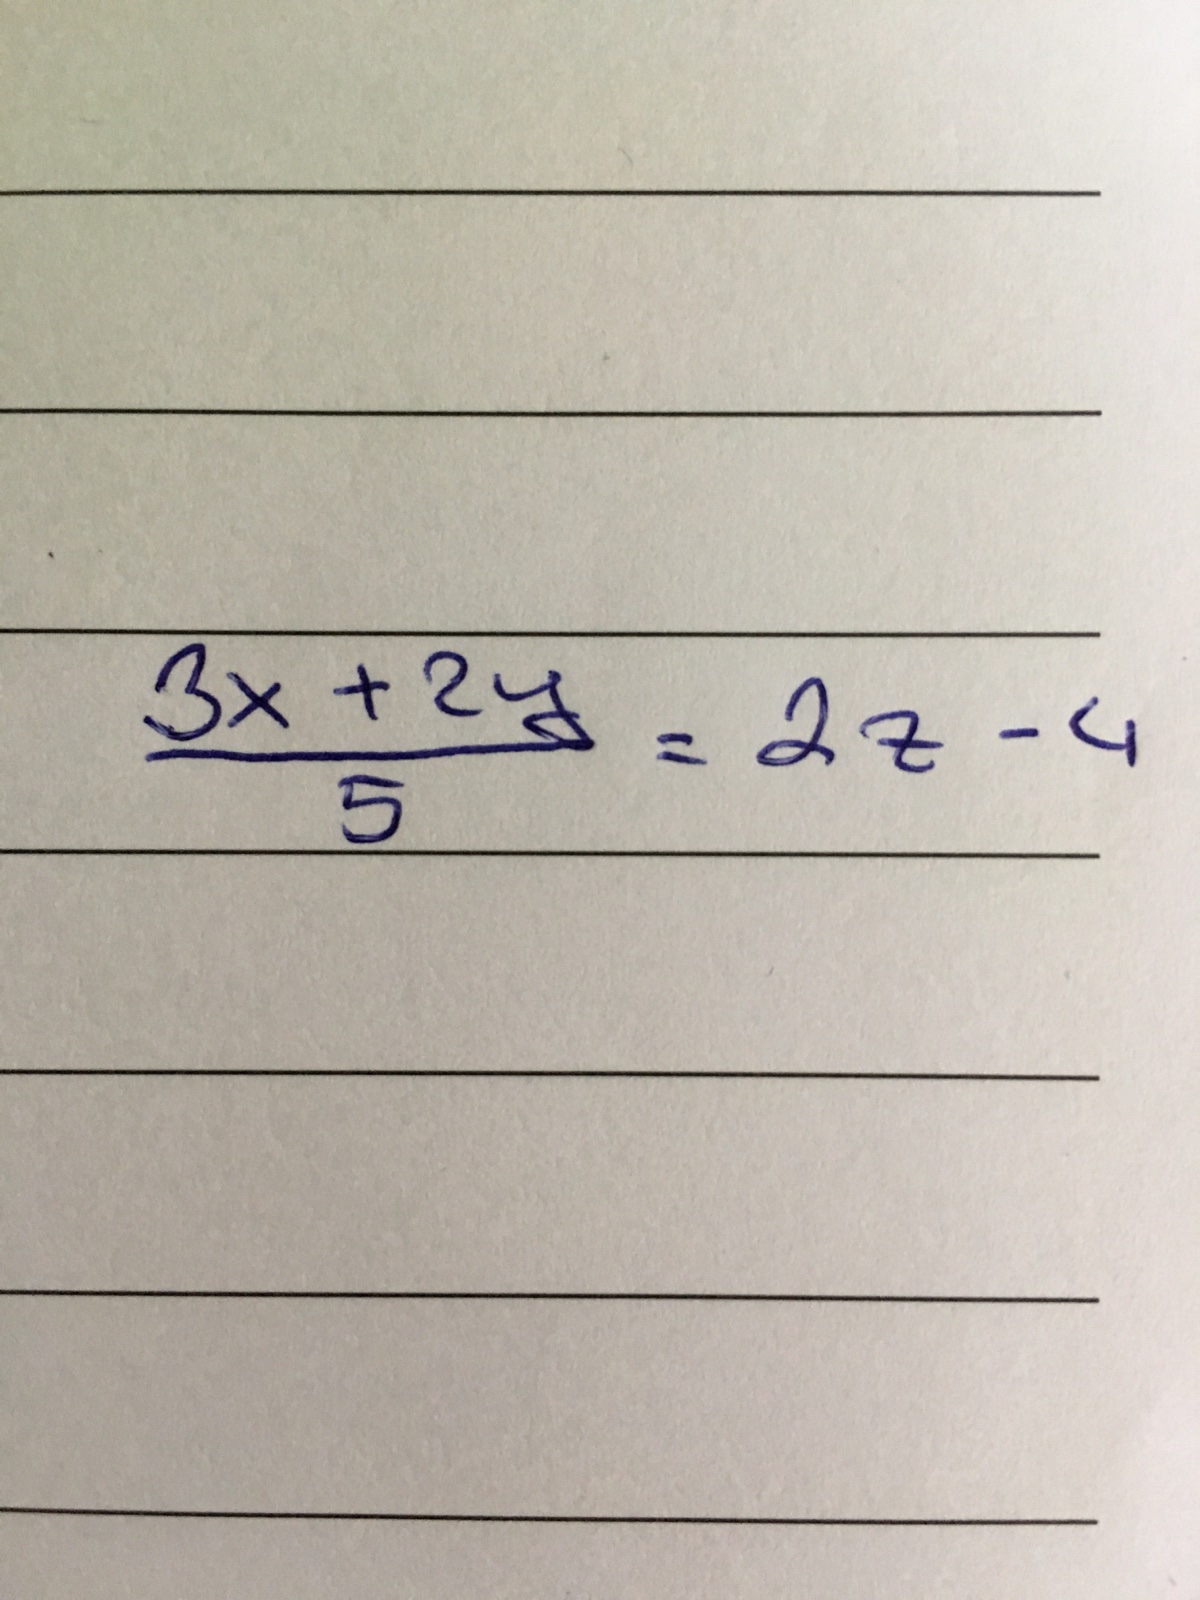 3x + 2y
5
= 2z - 4